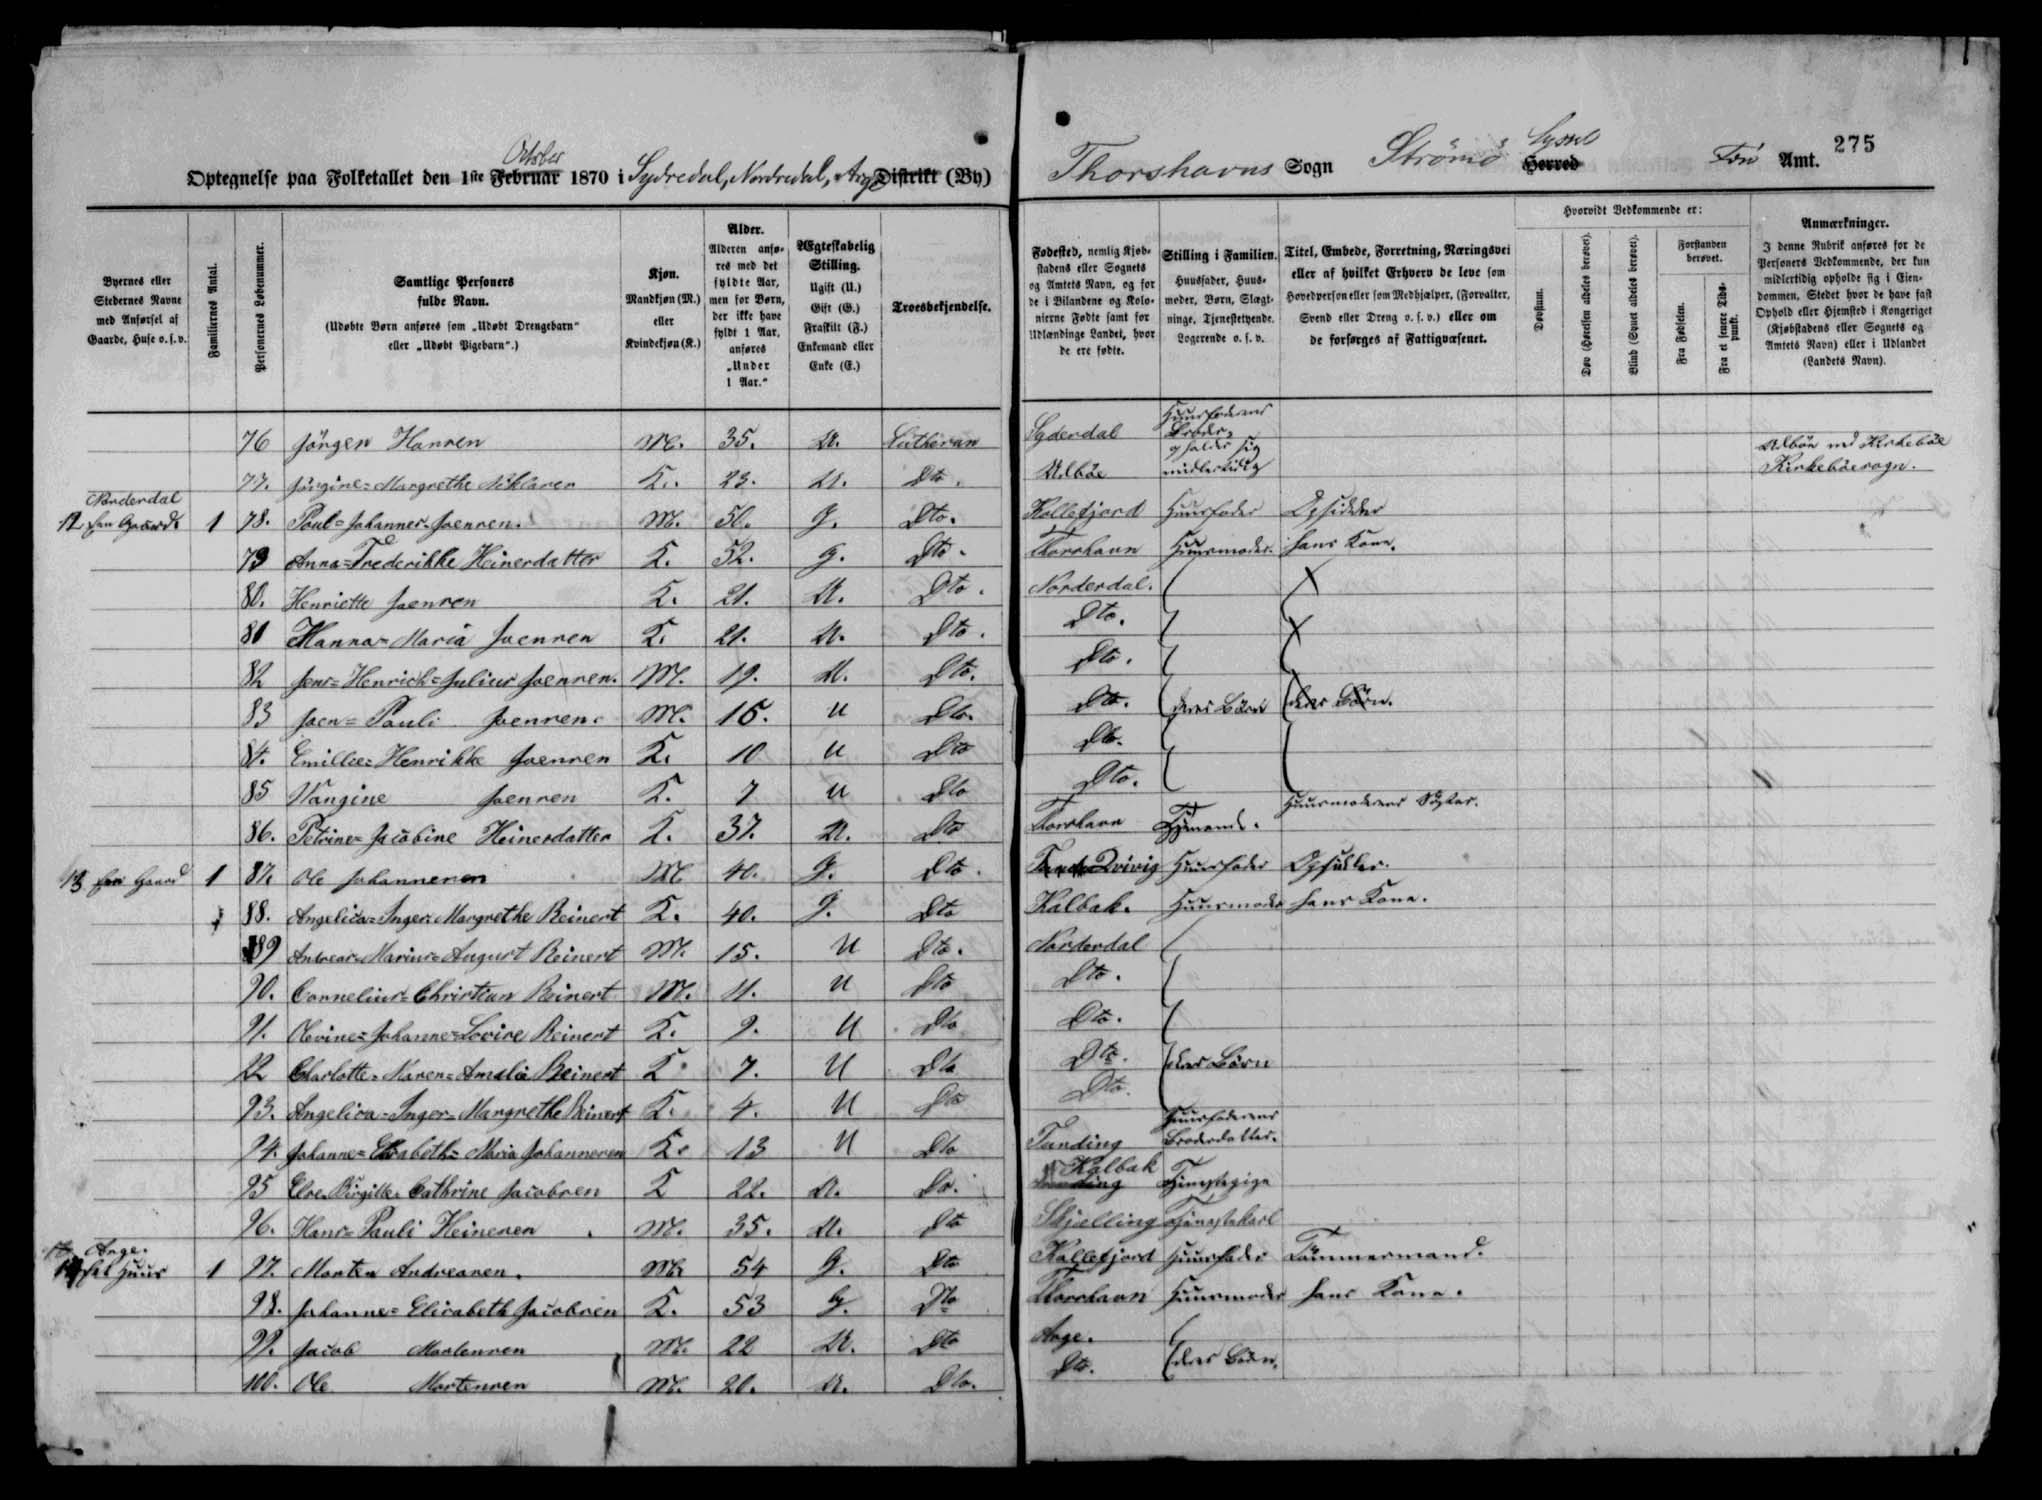 October
Optegnelse paa Folketallet den 1ste Februar 1870 i Sydredal, Nordredal, Arge Distrikt (By)
Thorshavns Sogn Strömö Syssel Herred Förö Amt. 275
Byernes eller Stedernes Navne med Anførsel af Gaarde, Huse o. s. v.
Familiernes Antal.
Personernes Løbenummer.
Samtlige Personers fulde Navn.
(Udøbte Børn anføres som „Udøbt Drengebarn“ eller „Udøbt Pigebarn“.)
Kjøn. Mandkjøn (M.) eller Kvindekjøn (K.)
Alder. Alderen anføres med det fyldte Aar, men for Børn, der ikke have fyldt 1 Aar, anføres „Under 1 Aar.“
Ægteskabelig Stilling. Ugift (U.) Gift (G.) Fraskilt (F.) Enkemand eller Enke (E.)
Troesbekjendelse.
Fødested, nemlig Kjøbstadens eller Sognets og Amtets Navn, og for de i Bilandene og Kolonierne Fødte samt for Udlændinge Landet, hvor de ere fødte.
Stilling i Familien. Huusfader, Huusmoder, Børn, Slægtninge, Tjenestetyende, Logerende o. s. v.
Titel, Embede, Forretning, Næringsvei eller af hvilket Erhverv de leve som Hovedperson eller som Medhjælper, (Forvalter, Svend eller Dreng o. s. v.) eller om de forsørges af Fattigvæsenet.
Hvorvidt Vedkommende er:
Døvstum.
Døv (Hørelsen aldeles berøvet).
Blind (Synet aldeles berøvet).
Forstanden berøvet.
Fra Fødselen.
Fra et senere Tidspunkt.
Anmærkninger.
I denne Rubrik anføres for de Personers Vedkommende, der kun midlertidig opholde sig i Eiendommen, Stedet hvor de have fast Ophold eller Hjemsted i Kongeriget (Kjøbstadens eller Sognets og Amtets Navn) eller i Udlandet (Landets Navn).
76 Jörgen Hansen M. 35. U. Lutheran Syderdal Huusfaderens Broder,
77. Jörgine=Margrethe Niklasen K. 23. U. Dto. Velbӕ opholder sig midlertidig Velbӕ ved Kirkebӕ Kirkebӕsogn.
Norderdal
12 een Gaard 1 78. Poul=Johannes Joensen. M. 50. G. Dto. Kollefjord Huusfader Opsidder
79 Anna=Frederikke Heinesdatter K. 52. G. Dto. Thorshavn Huusmoder. hans Kone.
80. Henriette Joensen K. 21. U. Dto. Norderdal.
81 Hanna=Maria Joensen K. 21. U. Dto. Dto.
82 Jens=Henrich=Julius Joensen. M. 19. U. Dto. Dto.
83 Joen=Pauli Joensen. M. 15. U Dto. Dto. deres Börn deres Börn.
84. Emilie=Henrikke Joensen K. 10 U Dto Dto.
85 Vangine Joensen K. 7 U Dto Dto.
86. Petrine=Jacobine Heinesdatter K. 37. U. Dto Thorshavn Huusmoderens Söster.
13 een Gaard 1 87. Ole Johannesen M 40. G. Dto. Qvivig Huusfader Opsidder.
88. Angelica=Inger=Margrethe Reinert K. 40. G. Dto Kalbak. Huusmoder hans Kone.
89 Andreas=Marius=August Reinert M. 15. U Dto. Norderdal
90. Cornelius=Christian Reinert M. 11. U Dto Dto.
91. Olevine=Johanne=Lovise Reinert K. 9. U Dto Dto.
92 Charlotte=Maren=Amalie Reinert K. 7. U Dto Dto. deres Börn
93. Angelica=Inger=Margrethe Reinert K. 4. U Dto Dto.
94. Johanne=Elsabeth=Maria Johannesen K. 13 U Dto Tunding Huusfaderens Broderdatter.
95 Else=Birgitte=Cathrine Jacobsen K 22. U. Do. Kalbak Tjenestepige
96. Hans=Pauli Heinesen M. 35. U. Dto Skjelling Tjenestekarl
Arge.
14 eet Huus 1 97. Morten Andreasen. M. 54 G. Dto Kollefjord Huusfader Tömmermand.
98. Johanne=Elisabeth Jacobsen K. 53 G. Dto Thorshavn Huusmoder hans Kone.
99. Jacob Mortensen M. 22 U. Dto Arge.
100. Ole Mortensen M. 20. U. Dto. Dto. deres Börn.